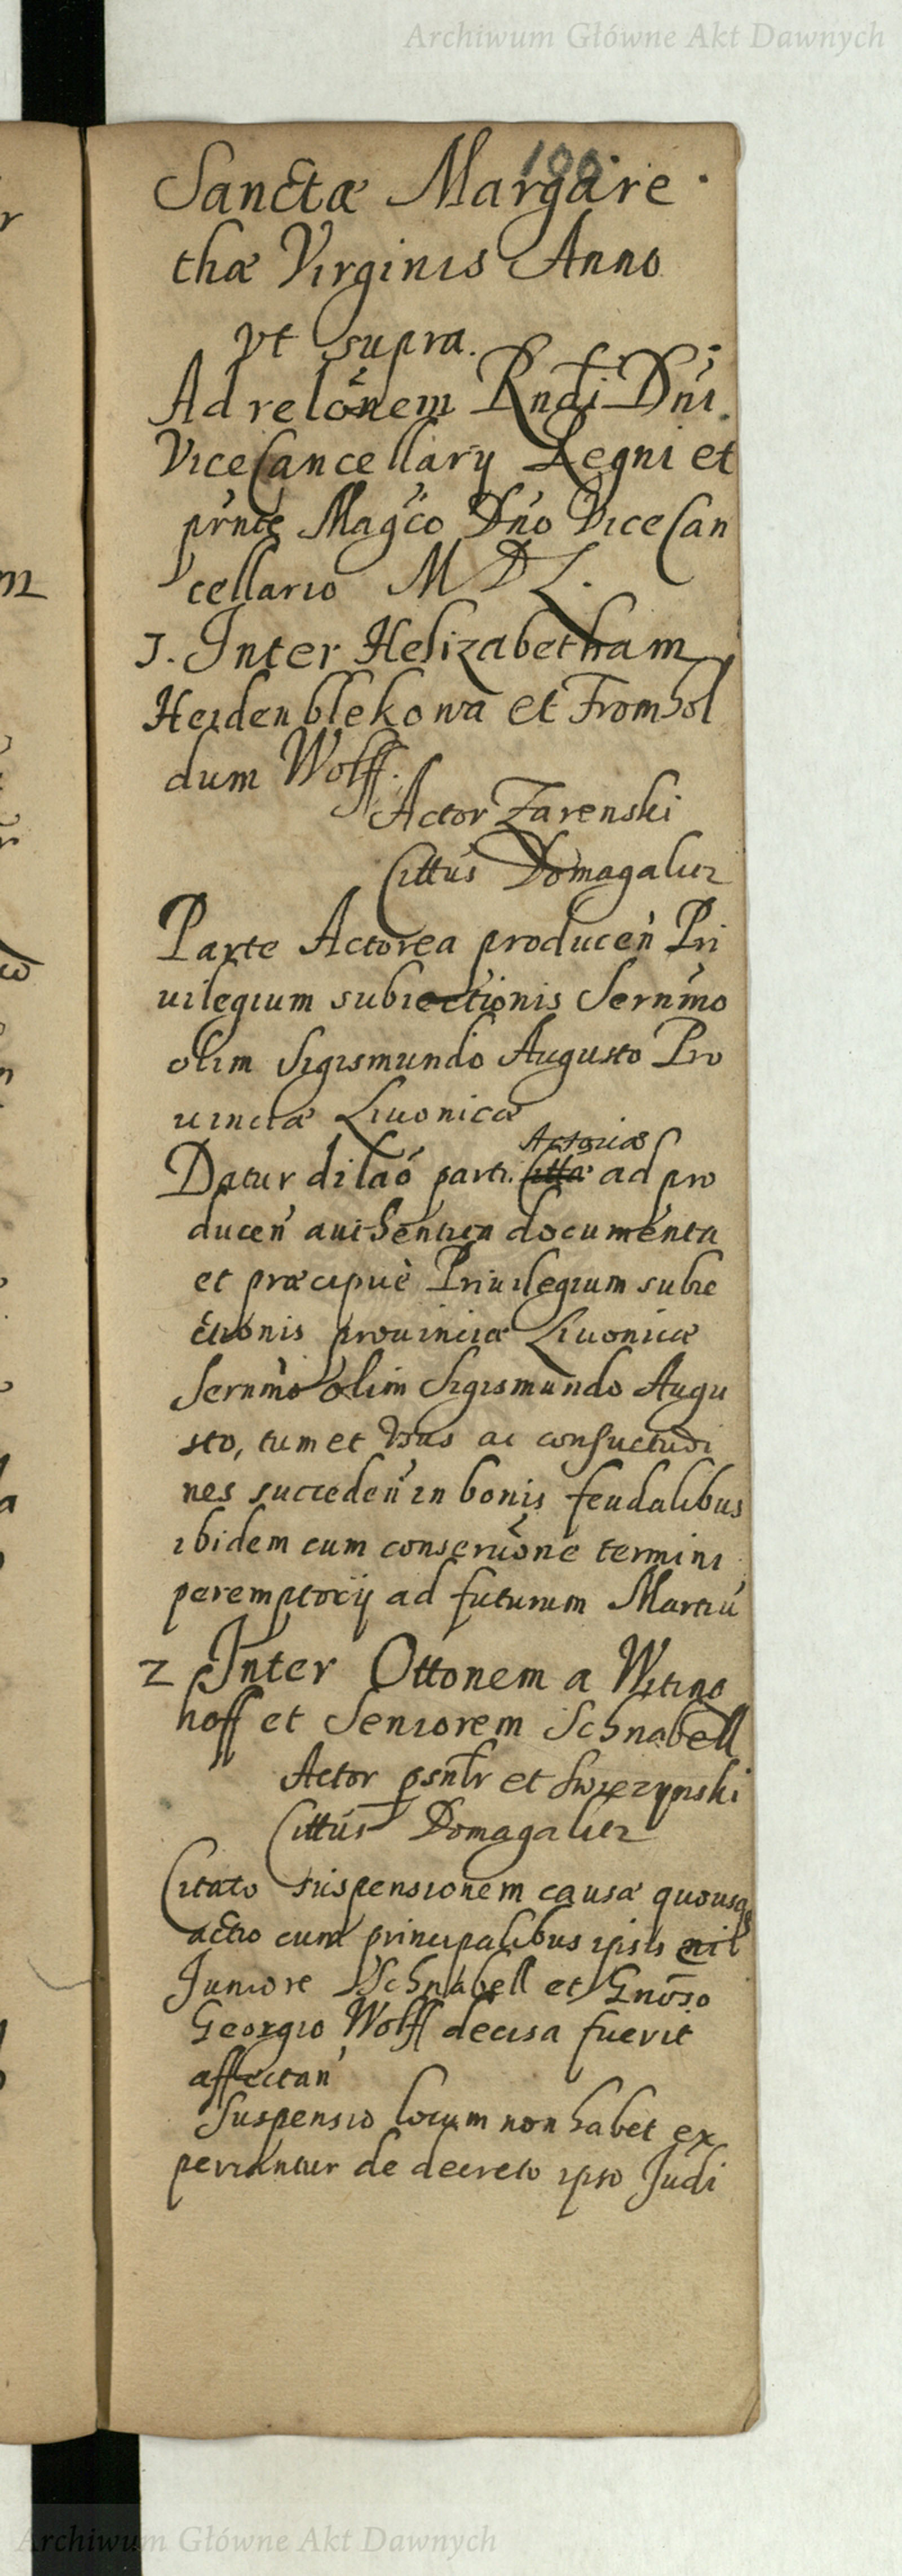 Archiwum Główne Akt Dawnych
100
Sanctæ Margare
thæ Virginis Anno
vt supra.
Ad relonem Rndi Dni
ViceCancellary Regni et
prnte Magco Dno ViceCan
cellario M D L.
1. Inter Helizabetham
Heidenblekowa et Frombol
dum Wolff.
Actor Zarenski
Cittus Domagalicz
Parte Actorea producen Pri
uilegium subiectionis Sernmo
olim Sigismundo Augusto Pro
uinciæ Liuonicæ
Actoriæ
Datur dilao parti Cittæ ad pro
ducen authentica documenta
et præcipuè Priuilegium subie
ctionis prouinciæ Liuonicæ
Sernmo olim Sigismundo Augu
sto, tum et vsus ac consuetudi
nes succeden in bonis feudalibus
ibidem cum conseruone termini
peremptorij ad futurum Martiu
2 Inter Ottonem a Witino
hoff et Seniorem Schnabell
Actor psntr et Swiezynski
Cittus Domagalicz
Citato suspensionem causæ quousq
actio cum principalibus ipsis
Juniore Schnabell et Gnoso
Georgio Wolff decisa fuerit
affectan
Suspensio locum non habet ex
periantur de decreto ipso Judi
Archiwum Główne Akt Dawnych